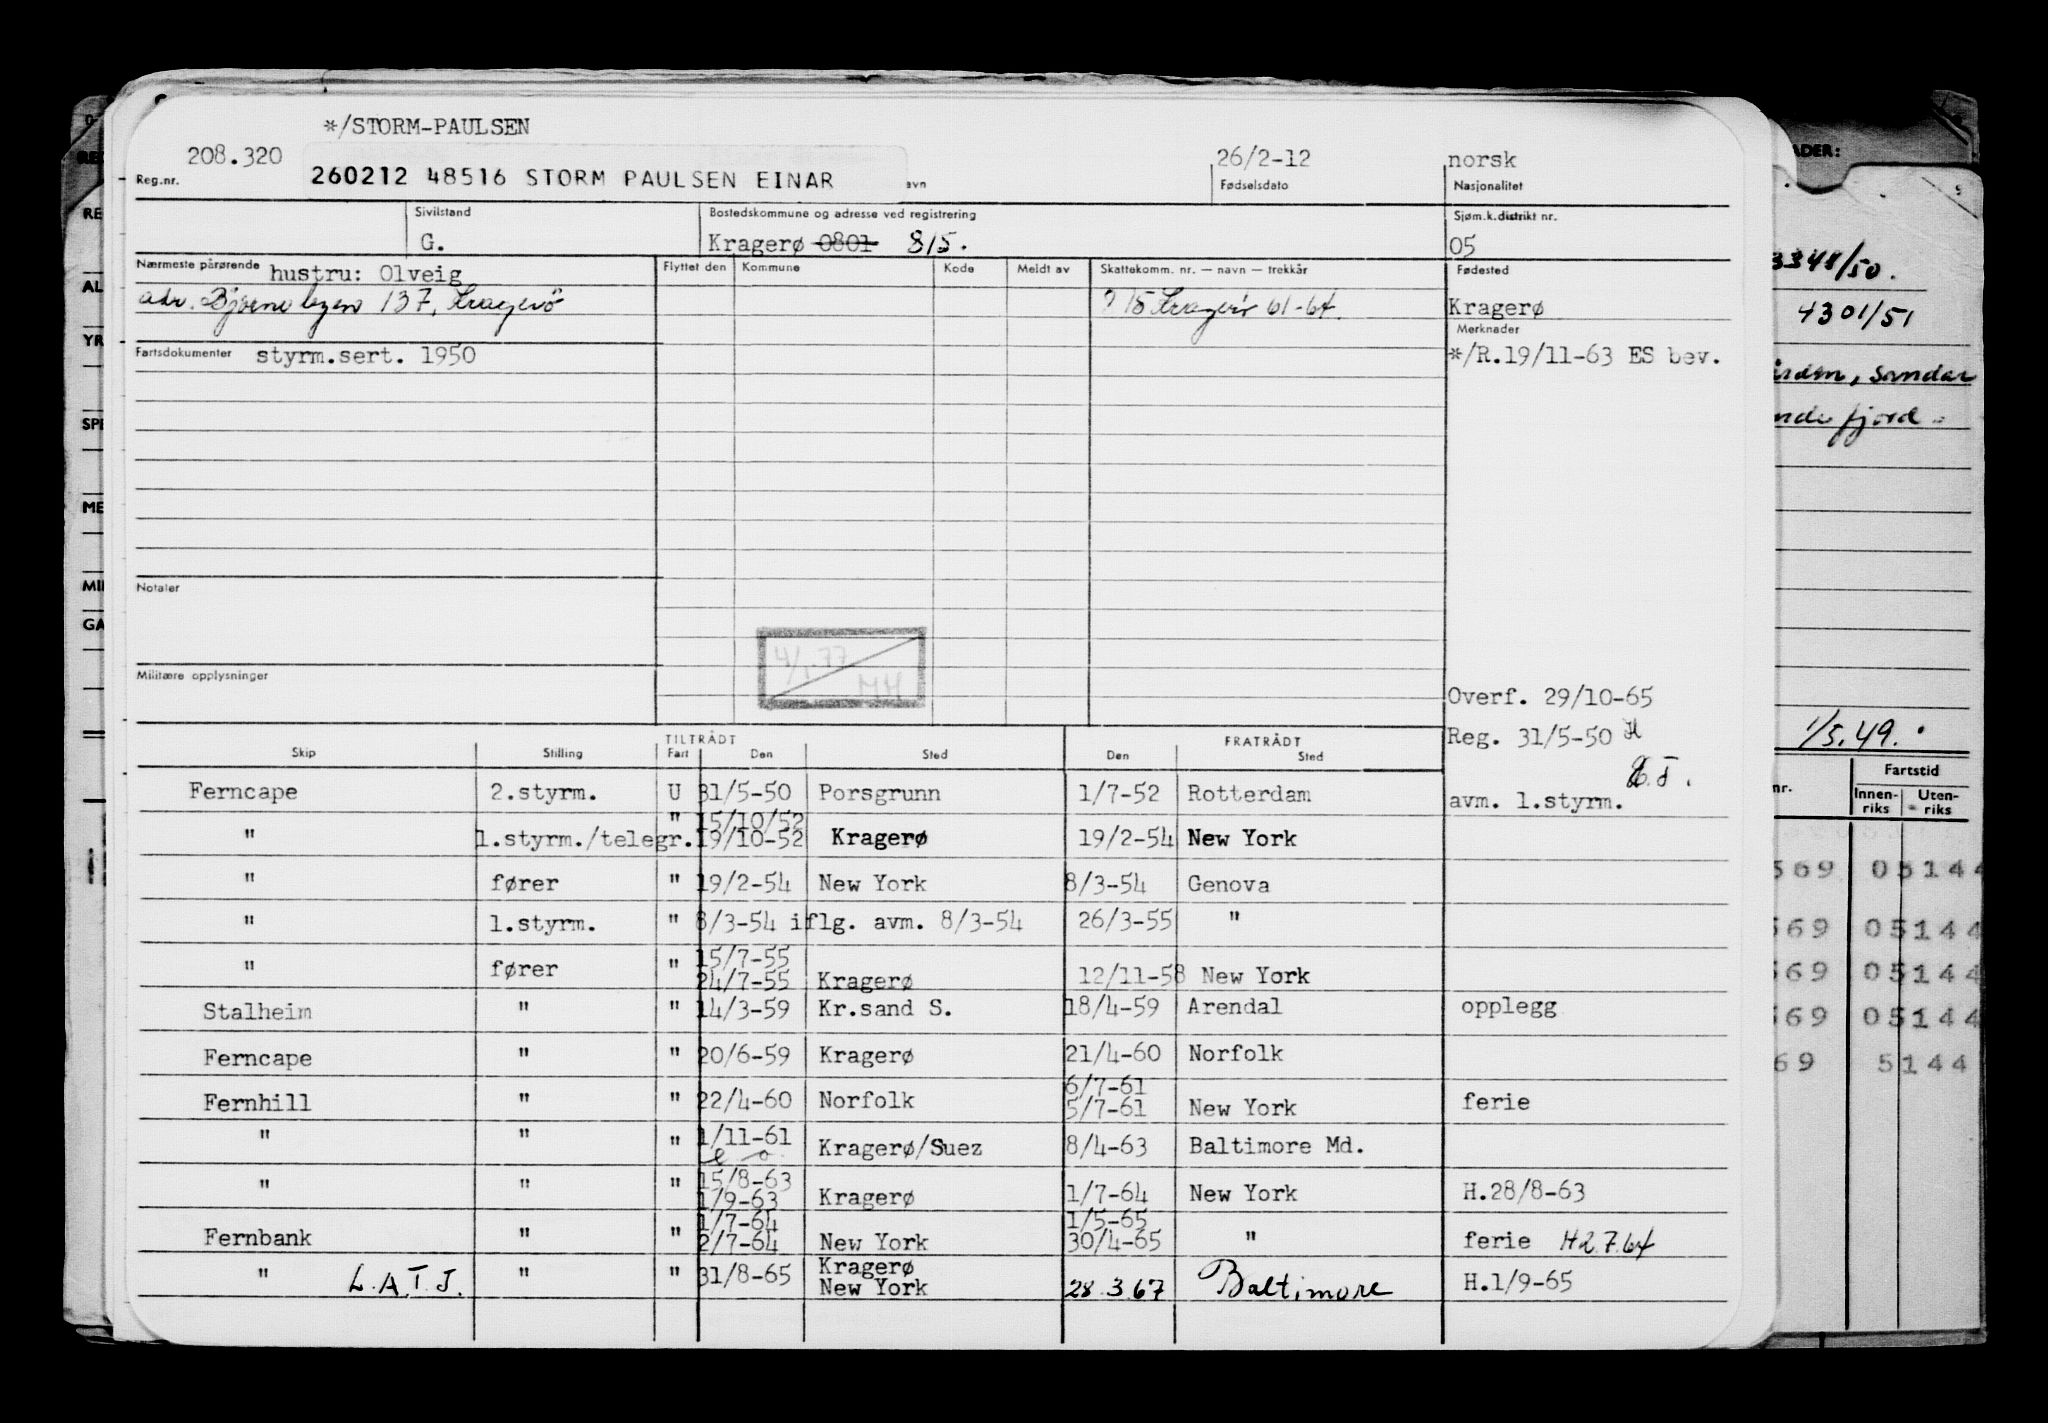 */STORM-PAULSEN
208.320
Reg.nr.
260212 48516 STORM PAULSEN EINAR
avn
26/2-12
Fødselsdato
norsk
Nasjonalitet
Sivilstand
G.
Bostedskommune og adresse ved registrering
Kragerø 0801 815.
Sjøm.k.distrikt nr.
05
Nærmeste pårørende hustru: Olveig
adr. 137, Kragerö
Flyttet den Kommune Kode Meldt av
Skattekomm. nr. — navn — trekkår
15 Kragerö 61-64.
Fødested
Kragerø
Merknader
*/R.19/11-63 ES bev.
Fartsdokumenter styrm.sert. 1950
Notater
Militære opplysninger
4/1.77
MH
Overf. 29/10-65
Reg. 31/5-50
avm. 1.styrm.
TILTRÅDT FRATRÅDT
Skip Stilling Fart Den Sted Den Sted
Ferncape 2.styrm. U 31/5-50 Porsgrunn 1/7-52 Rotterdam
15/10/52
" 1.styrm./telegr. " 19/10-52 Kragerø 19/2-54 New York
" fører " 19/2-54 New York 8/3-54 Genova
" 1.styrm. " 8/3-54 iflg. avm. 8/3-54 26/3-55 "
15/7-55
" fører " 24/7-55 Kragerø 12/11-58 New York
Stalheim " " 14/3-59 Kr.sand S. 18/4-59 Arendal opplegg
Ferncape " " 20/6-59 Kragerø 21/4-60 Norfolk
6/7-61
Fernhill " " 22/4-60 Norfolk 5/7-61 New York ferie
" " " 1/11-61 Kragerø/Suez 8/4-63 Baltimore Md.
15/8-63
" " " 1/9-63 Kragerø 1/7-64 New York H.28/8-63
1/7-64 1/5-65
Fernbank " " 2/7-64 New York 30/4-65 " ferie H2.7.64
Kragerø
" L.A.T.J. " " 31/8-65 New York 28.3.67 Baltimore H.1/9-65
RE
AL
YR
SPE
ME
MI
GA
ADER:
3348/50.
4301/51
, sandar
fjord
1/5.49.
nr.
Fartstid
Innen-riks Uten-riks
569 05144
569 05144
569 05144
569 05144
69 5144